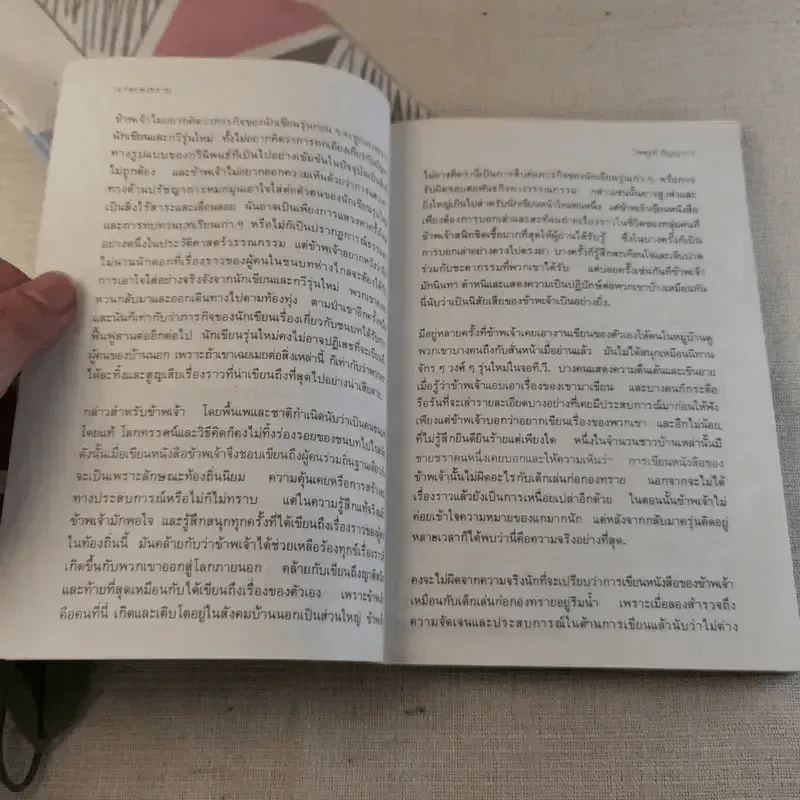 ก่อกองทราย
ข้าพเจ้าไม่อยากคิดว่าภารกิจของนักเขียนรุ่นก่อน ๆ จะถูก
นักเขียนและกวีรุ่นใหม่ ทั้งไม่อยากคิดว่าการถกเถียงเกี่ยวกับปัญหา
ทางรูปแบบของกวีนิพนธ์ที่เป็นไปอย่างเข้มข้นในปัจจุบันเป็นสิ่ง
ไม่ถูกต้อง และข้าพเจ้าไม่อยากออกความเห็นด้วยว่าการแสวง
ทางด้านปรัชญาการหมกมุนเอาใจใส่ต่อตัวตนของนักเขียนรุ่นใหม่
เป็นสิ่งไร้สาระและเลื่อนลอย นั่นอาจเป็นเพียงการแสวงหาครั้งใหม่
และการทบทวนบทเรียนเก่า ๆ หรือไม่ก็เป็นปรากฏการณ์ธรรมดา
อย่างหนึ่งในประวัติศาสตร์วรรณกรรม แต่ข้าพเจ้าอยากหวังว่า
ไม่นานนักดอกที่เรื่องราวของผู้คนในชนบทห่างไกลจะต้องได้รับ
การเอาใจใส่อย่างจริงจังจากนักเขียนและกวีรุ่นใหม่ พวกเขาคง
หวนกลับมาและออกเดินทางไปตามท้องทุ่ง ตามป่าเขาอีกครั้งหนึ่ง
และนั่นก็เท่ากับว่าภารกิจของนักเขียนเรื่องเกี่ยวกับชนบทได้รับการ
ฟื้นฟูสานต่ออีกต่อไป นักเขียนรุ่นใหม่คงไม่อาจปฏิเสธที่จะเขียนถึง
ผู้คนของบ้านนอก เพราะถ้าเขาเฉยเมยต่อสิ่งเหล่านี้ ก็เท่ากับว่าพวกเขา
ได้ละทิ้งและสูญเสียเรื่องราวที่น่าเขียนถึงที่สุดไปอย่างน่าเสียดาย
กล่าวสำหรับข้าพเจ้า โดยพื้นเพและชาติกำเนิดนับว่าเป็นคนชนบท
โดยแท้ โลกทรรศน์และวิธีคิดก็คงไม่ทิ้งร่องรอยของชนบทไปไกลนัก
ดังนั้นเมื่อเขียนหนังสือข้าพเจ้าจึงชอบเขียนถึงผู้คนร่วมถิ่นฐานเดียวกัน
จะเป็นเพราะลักษณะท้องถิ่นนิยม ความคุ้นเคยหรือการสร้างสม
ทางประสบการณ์หรือไม่ก็ไม่ทราบ แต่ในความรู้สึกแท้จริงแล้ว
ข้าพเจ้ามักพอใจ และรู้สึกสนุกทุกครั้งที่ได้เขียนถึงเรื่องราวของผู้คน
ในท้องถิ่นนี้ มันคล้ายกับว่าข้าพเจ้าได้ช่วยเหลือร้องทุกข์เรื่องราวที่
เกิดขึ้นกับพวกเขาออกสู่โลกภายนอก คล้ายกับเขียนถึงญาติสนิท
และท้ายที่สุดเหมือนกับได้เขียนถึงเรื่องของตัวเอง เพราะข้าพเจ้า
คือคนที่นี่ เกิดและเติบโตอยู่ในสังคมบ้านนอกเป็นส่วนใหญ่ ข้าพเจ้า
ไพฑูรย์ ธัญญา
ไม่อาจคิดว่านี่เป็นการสืบต่อภารกิจของนักเขียนรุ่นเก่า ๆ หรือการ
รับผิดชอบต่อพันธกิจทางวรรณกรรม กล่าวเช่นนั้นอาจสูงส่งและ
ยิ่งใหญ่เกินไปสำหรับนักเขียนหน้าใหม่คนหนึ่ง แต่ข้าพเจ้าเขียนหนังสือ
เพียงต้องการบอกเล่าและสะท้อนถ่ายเรื่องราวในชีวิตของกลุ่มคนที่
ข้าพเจ้าสนิทชิดเชื้อมากที่สุดให้ผู้อ่านได้รับรู้ ซึ่งในบางครั้งก็เป็น
การบอกเล่าอย่างตรงไปตรงมา บางครั้งก็รู้สึกสะเทือนใจและเจ็บปวด
ร่วมกับชะตากรรมที่พวกเขาได้รับ แต่บ่อยครั้งเช่นกันที่ข้าพเจ้า
มักนินทา ตำหนิและแสดงความเป็นปฏิปักษ์ต่อพวกเขาบ้างเหมือนกัน
นี่นับว่าเป็นนิสัยเสียของข้าพเจ้าเป็นอย่างยิ่ง.
มีอยู่หลายครั้งที่ข้าพเจ้าเคยเอางานเขียนของตัวเองให้คนในหมู่บ้านดู
พวกเขาบางคนถึงกับสั่นหน้าเมื่ออ่านแล้ว มันไม่ได้สนุกเหมือนนิทาน
จักร ๆ วงศ์ ๆ รุ่นใหม่ในจอที.วี. บางคนแสดงความตื่นเต้นและเขินอาย
เมื่อรู้ว่าข้าพเจ้าแอบเอาเรื่องของเขามาเขียน และบางคนก็กระตือ
รือร้นที่จะเล่ารายละเอียดบางอย่างที่เคยมีประสบการณ์มาก่อนให้ฟัง
เพียงแต่ข้าพเจ้าบอกว่าอยากเขียนเรื่องของพวกเขา และอีกไม่น้อย
ที่ไม่รู้สึกยินดียินร้ายแต่เพียงใด หนึ่งในจำนวนชาวบ้านเหล่านั้นมี
ชายชราคนหนึ่งเคยบอกและให้ความเห็นว่า การเขียนหนังสือของ
ข้าพเจ้านั้นไม่ผิดอะไรกับเด็กเล่นก่อกองทราย นอกจากจะไม่ได้
เรื่องราวแล้วยังเป็นการเหนื่อยเปล่าอีกด้วย ในตอนนั้นข้าพเจ้าไม่
ค่อยเข้าใจความหมายของแกมากนัก แต่หลังจากกลับมาครุ่นคิดอยู่
หลายเวลาก็ได้พบว่านี่คือความจริงอย่างที่สุด.
คงจะไม่ผิดจากความจริงนักที่จะเปรียบว่าการเขียนหนังสือของข้าพเจ้า
เหมือนกับเด็กเล่นก่อกองทรายอยู่ริมน้ำ เพราะเมื่อลองสำรวจถึง
ความจัดเจนและประสบการณ์ในด้านการเขียนแล้วนับว่าไม่ต่าง